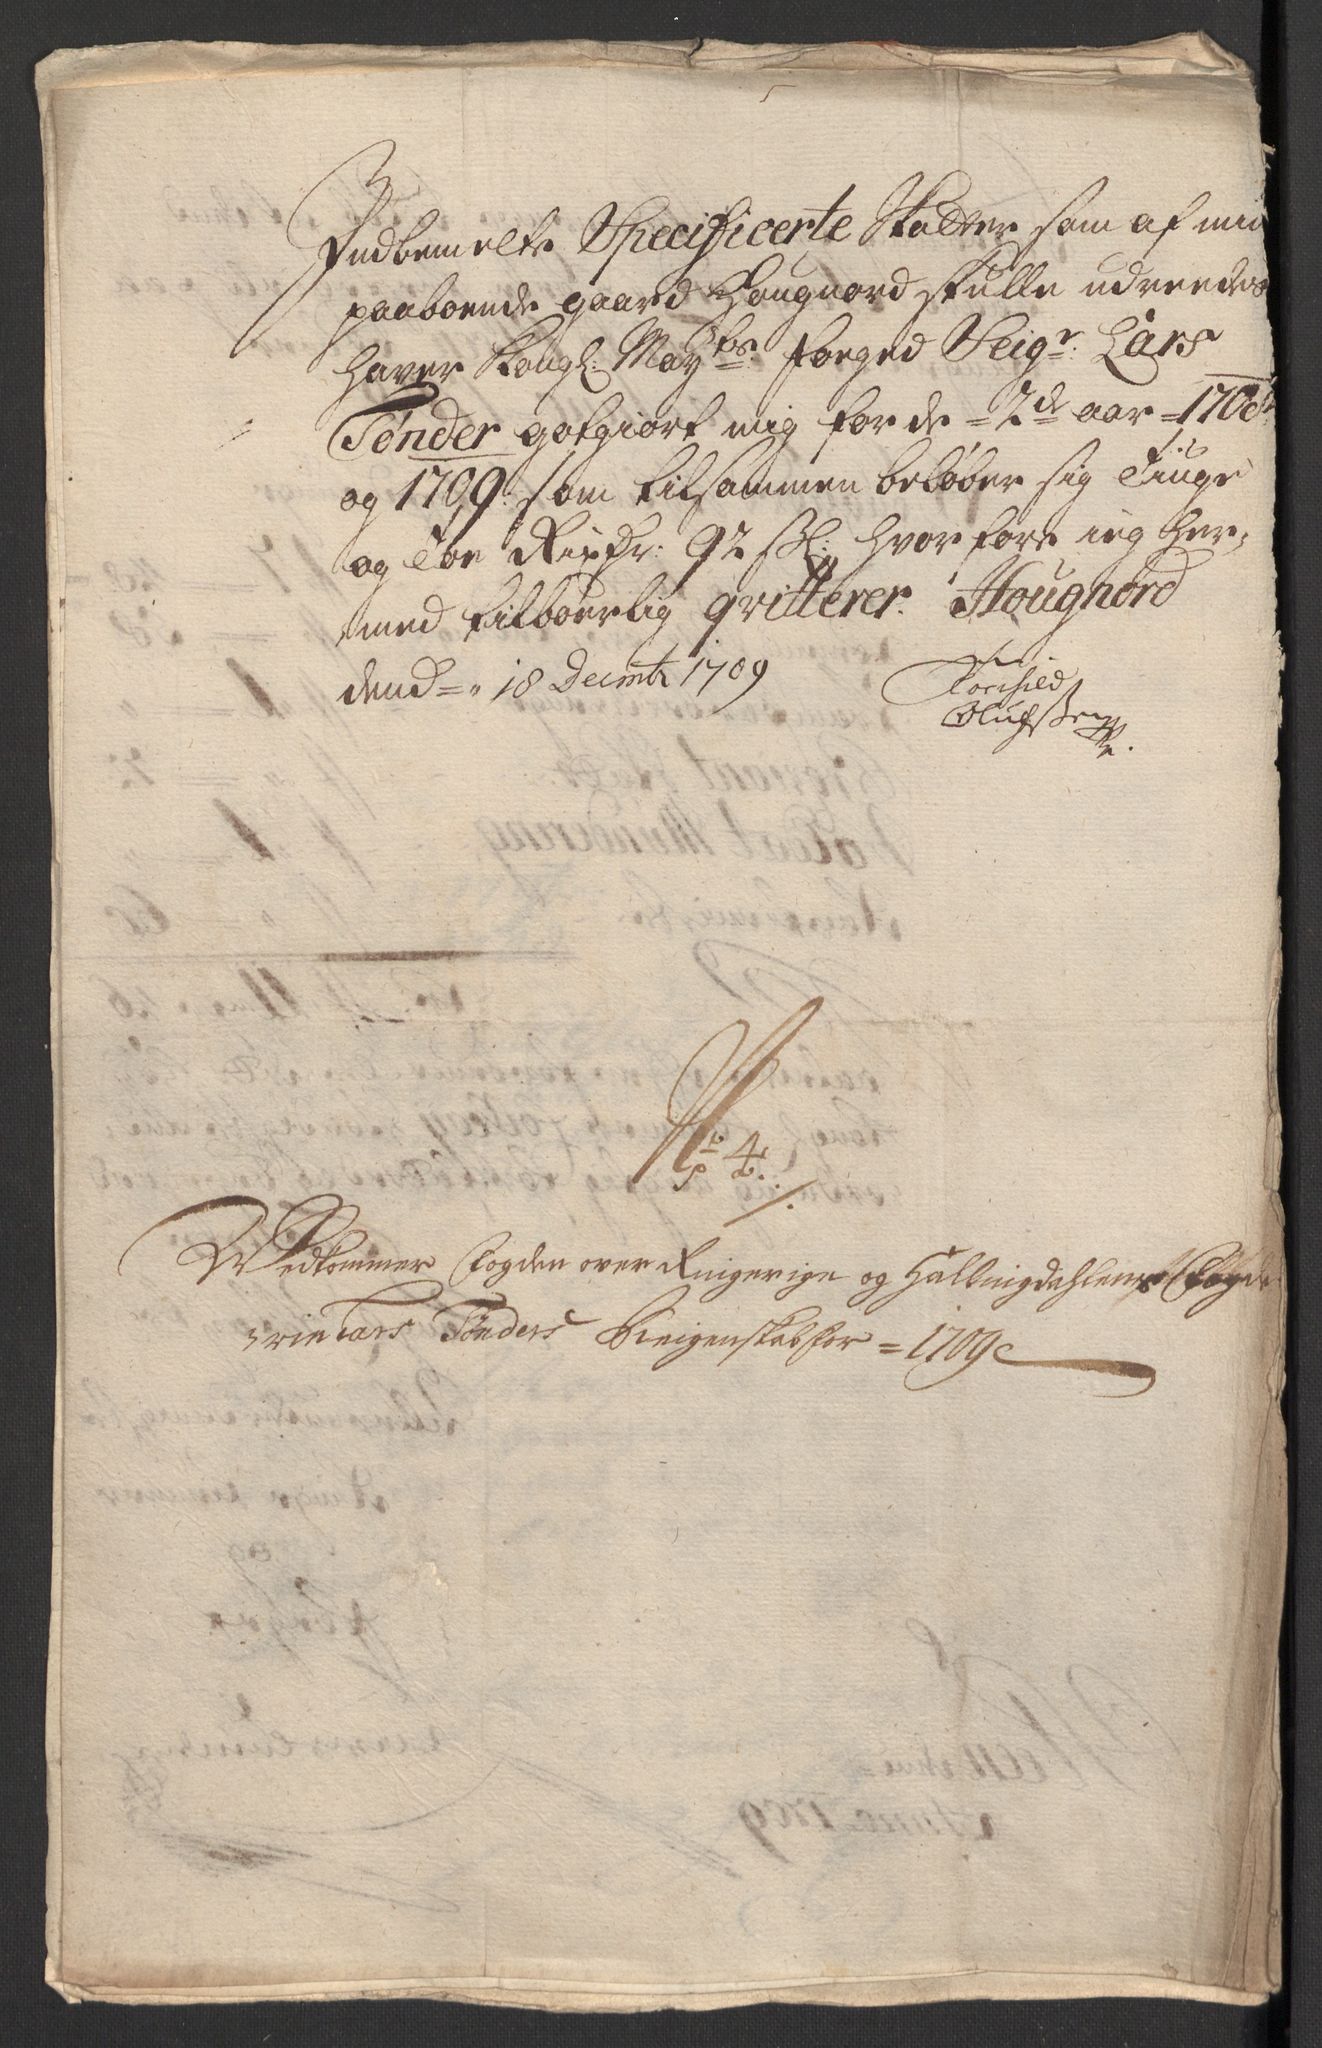 Indbemelte Specificerte Skatter som af min
paaboende gaard Hougnord skulle udreedes
haver Kongl: Maytz: foeged Seigr: Lars
Tønder gotgiort mig for de = 2de aar = 1708
og 1709: som tilsammen beløber sig Tiuge
og Toe Rixdr: 92 sk: hvorfore ieg her,
med tilbørlig qvitterer. Hougnord
dend = 18 Decmbr 1709
Torchild
Olufsen
No 4
Vedkommer Fogden over Ringerige og Hallingdahlens Fogde
rie Lars Tønders Reigenskab for = 1709